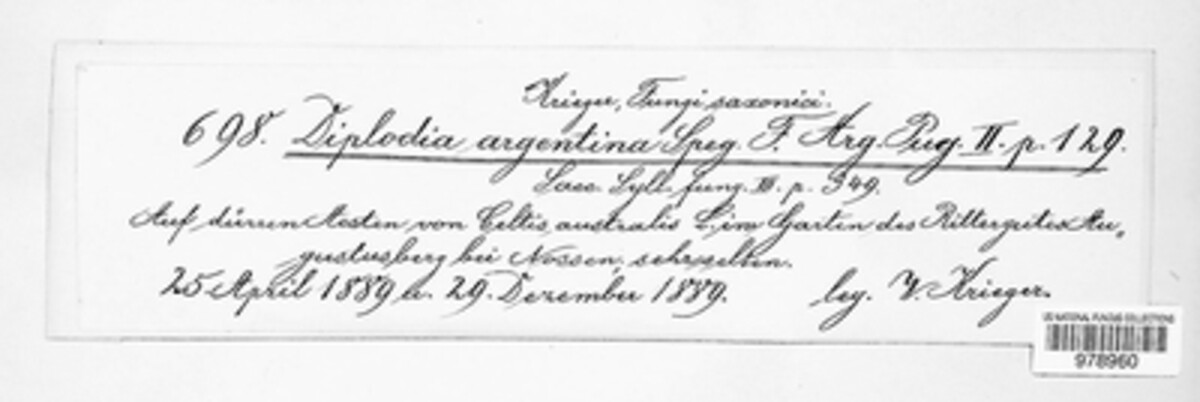 Krieger, Fungi saxonici.
698. Diplodia argentina Speg. F. Arg. Pug. II. p. 129.
Sacc. Syll. fung. III. p. 349.
Auf dürren Aesten von Celtis australis L. im Garten des Rittergutes Au„
gustusberg bei Nossen, sehr selten.
25 April 1889 u. 29. Dezember 1889. leg. W. Krieger.
US NATIONAL FUNGUS COLLECTIONS
978960